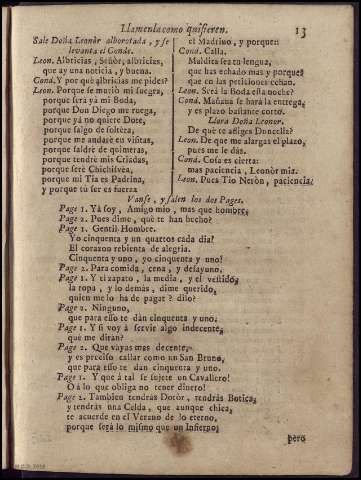 Llamenla como quisieren.
13
Sale Doña Leonòr alborotada, y se
levanta el Conde.
Leon. Albricias, Señòr, albricias,
que ay una noticia, y buena.
Cond. Y por què albricias me pides?
Leon. Porque se muriò mi suegra,
porque serà ya mi Boda,
porque Don Diego me ruega,
porque yà no quiere Dote,
porque salgo de soltèra,
porque me andarè en visitas,
porque saldrè de quimeras,
porque tendrè mis Criadas,
porque serè Chichisvèa,
porque mi Tia es Padrina,
y porque tù ser es fuerza
el Madrino, y porquen
Cond. Calla.
Maldita sea tu lengua,
que has echado mas y porques
que en las peticiones echan.
Leon. Serà la Boda esta noche?
Cond. Mañana se harà la entrega,
y es plazo bastante corto.
Llora Doña Leonor.
De què te afliges Doncella?
Leon. De que me alargas el plazo,
pues me le dàs.
Cond. Cosa es cierta:
mas paciencia, Leonòr mia.
Leon. Pues Tio Neròn, paciencia.
Vanse, y salen los dos Pages.
Page 1. Yà soy, Amigo mio, mas que hombre.
Page 2. Pues dime, què te han hecho?
Page 1. Gentil-Hombre.
Yo cinquenta y un quartos cada dia?
El corazon rebienta de alegria.
Cinquenta y uno, yo cinquenta y uno!
Page 2. Para comida, cena, y desayuno.
Page 1. Y el zapato, la media, y el vestido,
la ropa, y lo demàs, dime querido,
quien me lo ha de pagar? dilo?
Page 2. Ninguno,
que para esso te dàn cinquenta y uno.
Page 1. Y si voy à servir algo indecente,
què me diràn?
Page 2. Que vayas mas decente,
y es preciso callar como un San Bruno,
que para esso te dàn cinquenta y uno.
Page 1. Y que à tal se sujete un Cavallero!
O à lo que obliga no tener dinero!
Page 2. Tambien tendràs Dotòr, tendràs Botica,
y tendràs una Celda, que aunque chica,
te acuerde en el Verano de lo eterno,
porque serà lo mismo que un Infierno;
pero